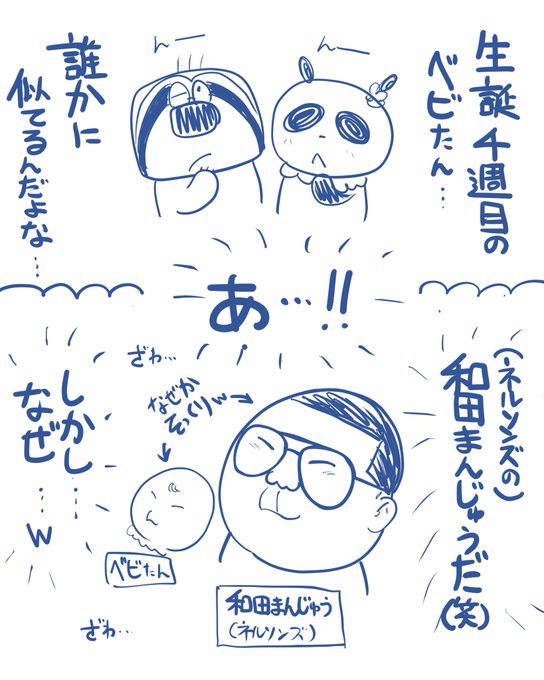 生誕千週目の
ベビたん…
んー
んー
誰かに
似てるんだよな…
あ…!!
(ネルソンズの)
和田まんじゅうだ(笑)
ざわ…
なぜか
そっくりw
しかし…
なぜ…w
ベビたん
和田まんじゅう
(ネルソンズ)
ざわ…